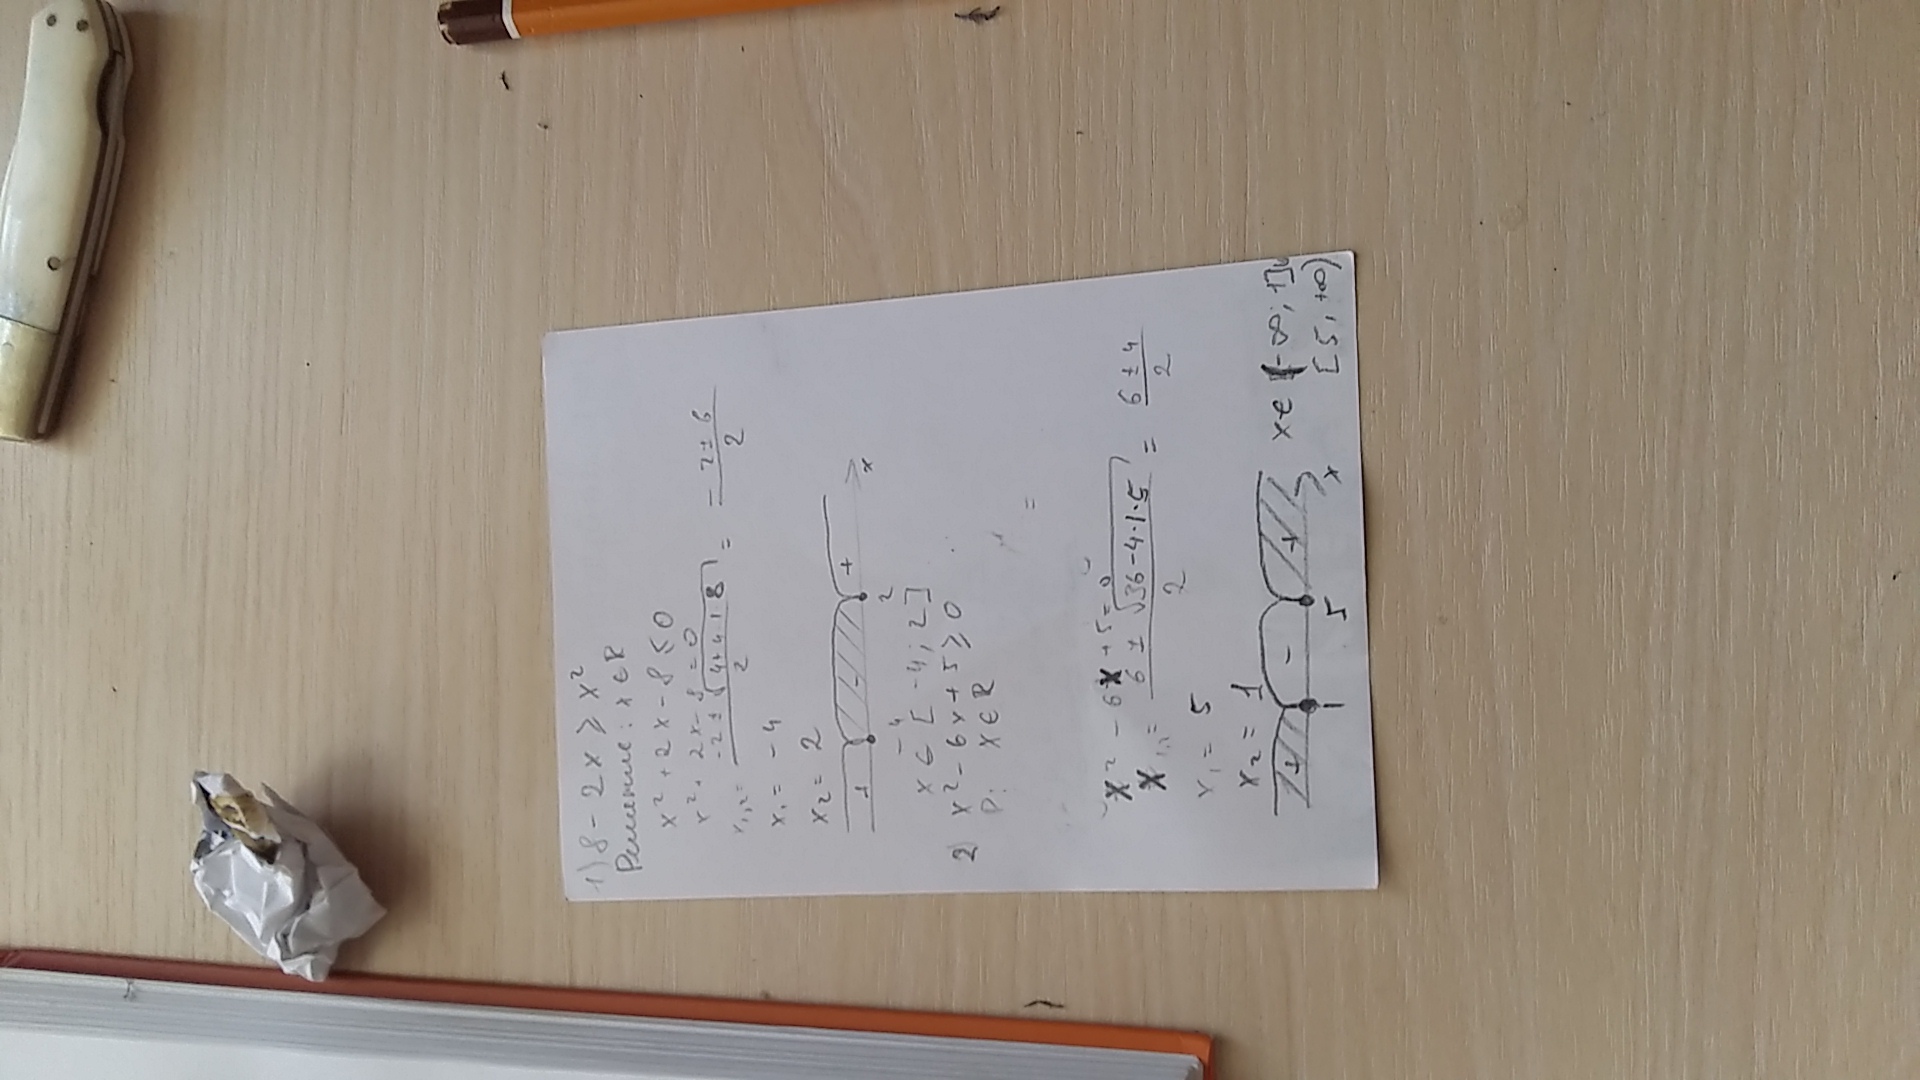 1) 8 - 2x ≥ x²
Решение: x ∈ R
x² + 2x - 8 ≤ 0
x² + 2x - 8 = 0
x₁,₂ = (-2 ± √(4+4·8))/2 = (-2 ± 6)/2
x₁ = -4
x₂ = 2
+ - + x
-4 2
x ∈ [-4; 2]
2) x² - 6x + 5 ≥ 0
Р: x ∈ R
=
x² - 6x + 5 = 0
x₁,₂ = (6 ± √(36-4·1·5))/2 = (6 ± 4)/2
x₁ = 5
x₂ = 1
+ - + x x ∈ (-∞; 1]∪
1 5 [5; +∞)